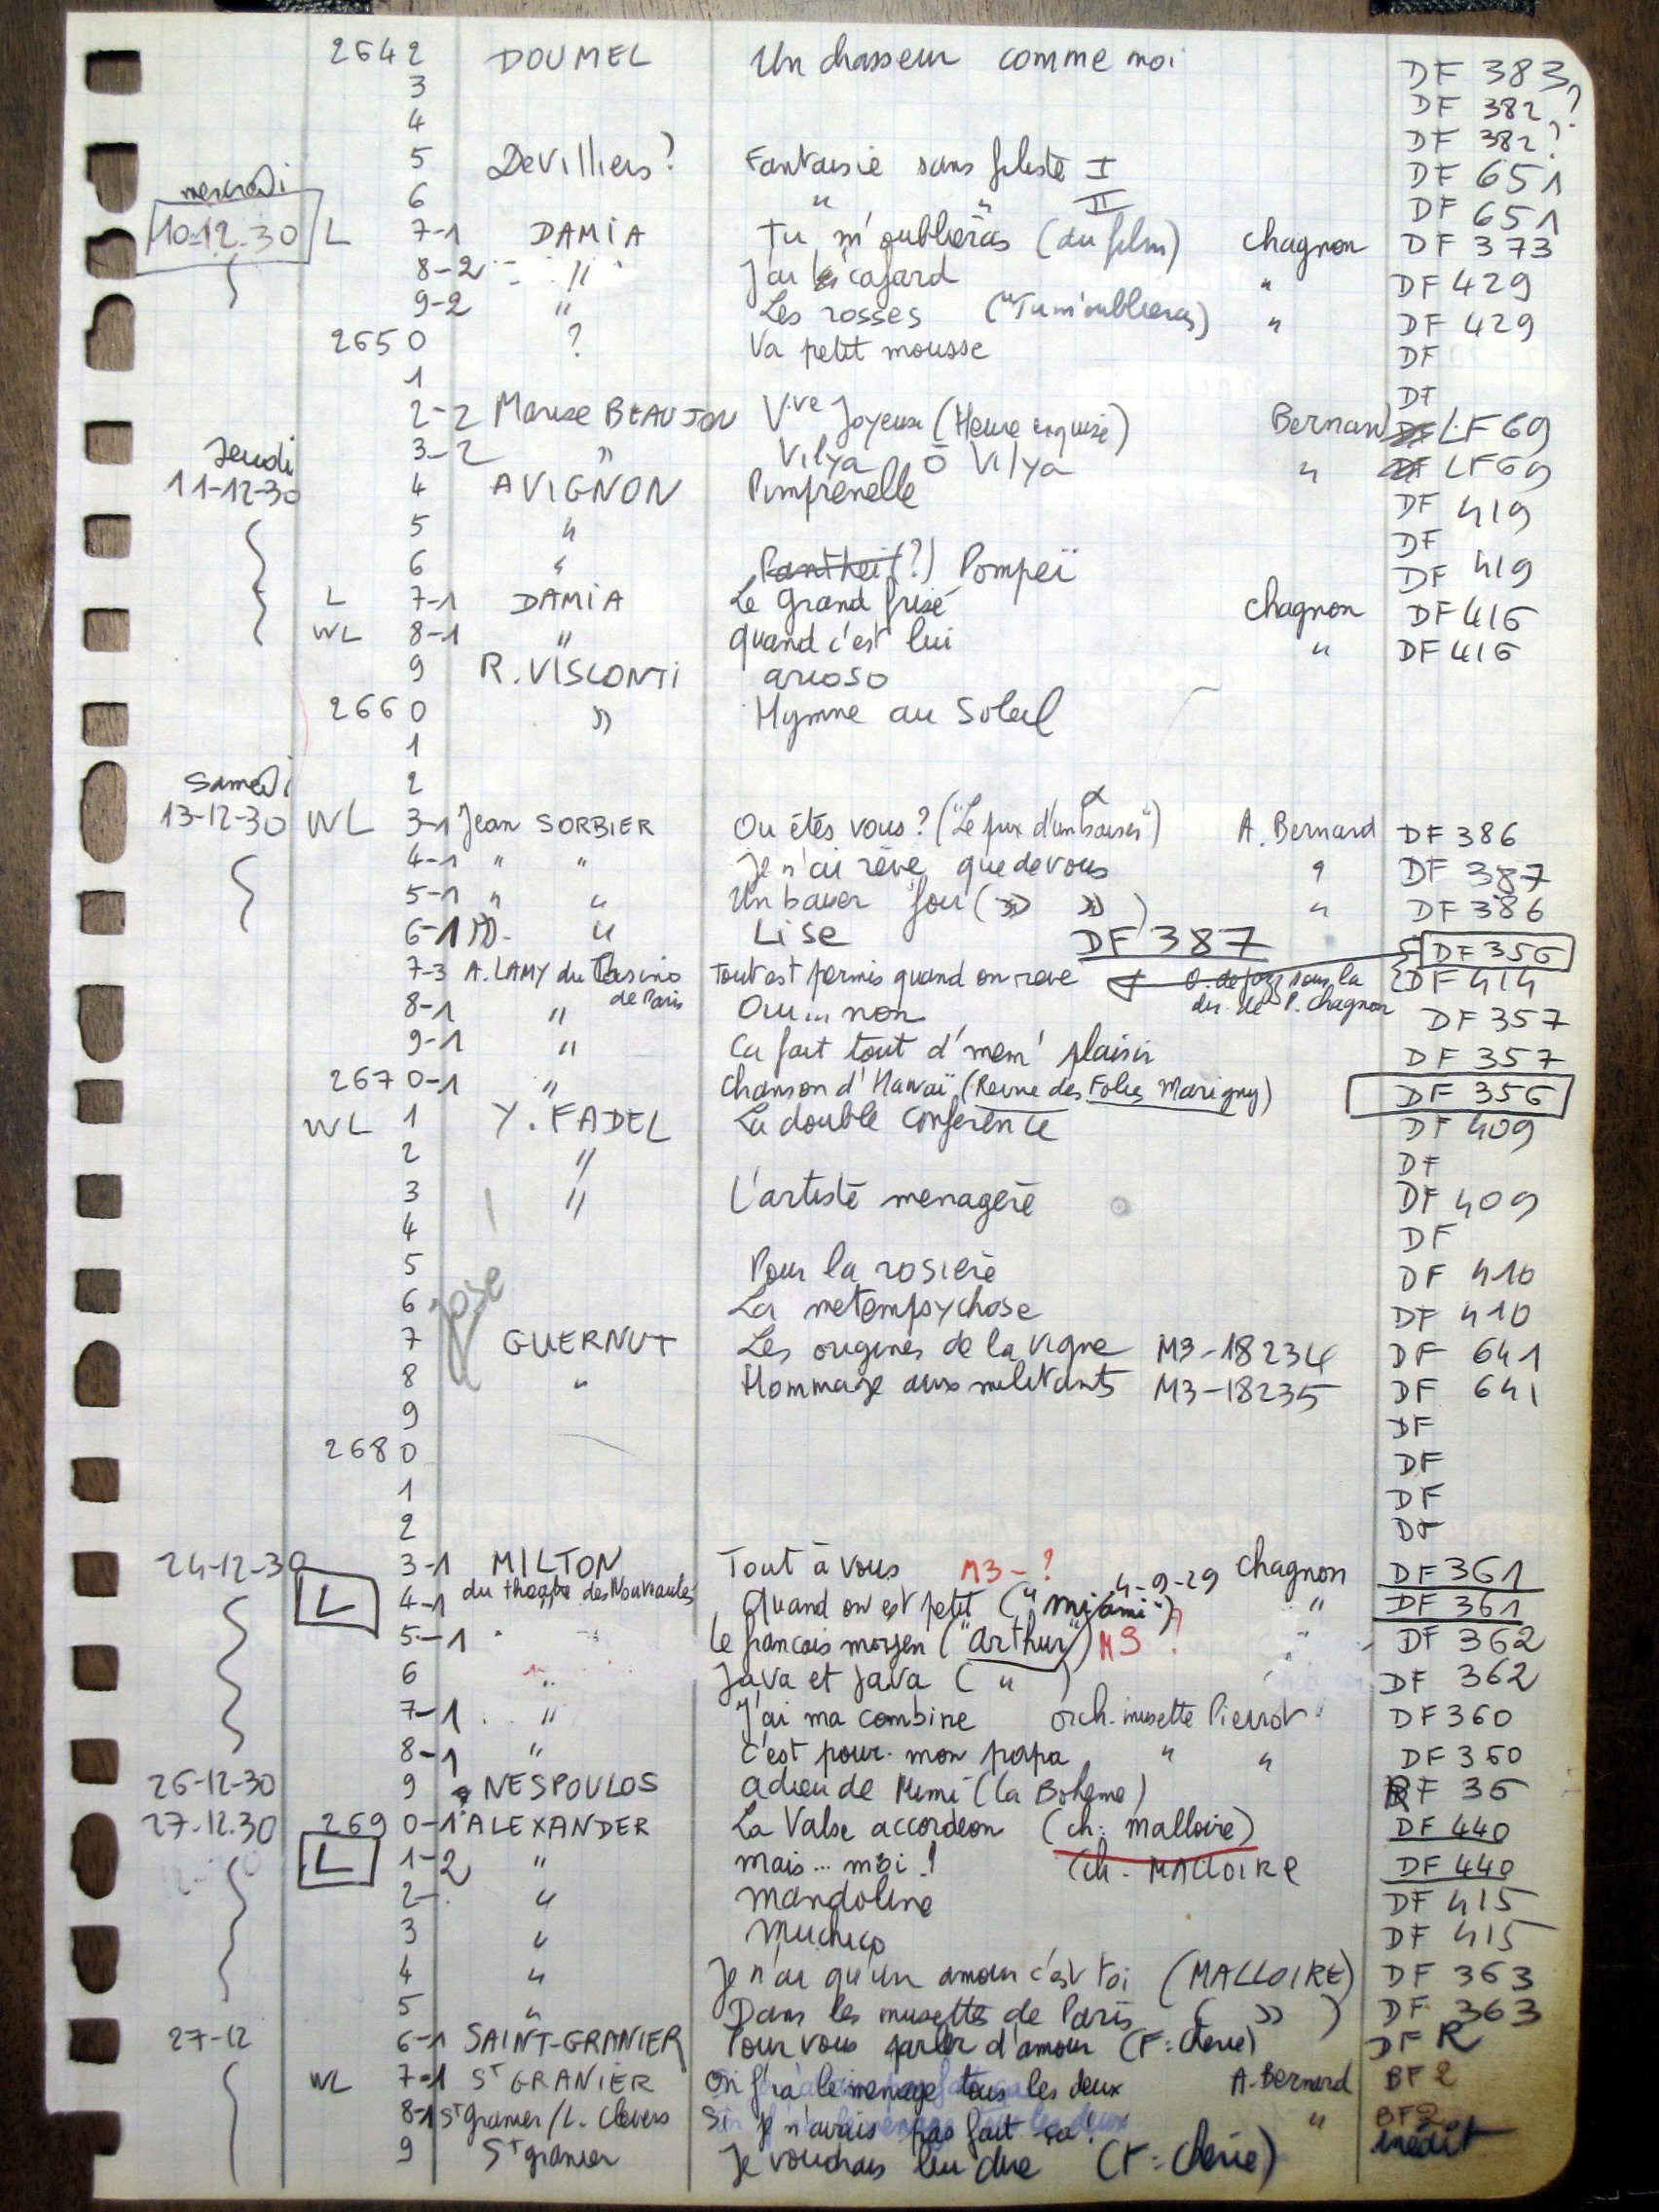 2642 DOUMEL Un chasseur comme moi DF 383
3 DF 382 ?
4 DF 382 ?
5 DeVilliers? Fantaisie sans filiste I DF 651
mercredi
6 " " II DF 651
10-12-30 L 7-1 DAMIA Tu m'oublieras (du film) Chagnon DF 373
8-2 " J'ai le cafard " DF 429
9-2 " Les rosses ("Tu m'oublieras) " DF 429
2650 ? Va petit mousse DF
1 DF
2-2 BEAUJON Vve Joyeuse (Heure exquise) Bernard LF 69
Jeudi
3-2 " Vilya ô Vilya " LF 69
11-12-30 4 AVIGNON Pimprenelle DF 419
5 " DF
6 " (?) Pompeï DF 419
L 7-1 DAMIA Le Grand frisé Chagnon DF 416
WL 8-1 " quand c'est lui " DF 416
9 R. VISCONTI arioso
2660 " Hymne au Soleil
1
Samedi
2
13-12-30 WL 3-1 Jean SORBIER Ou étés vous? ("Le prix d'un baiser") A. Bernard DF 386
4-1 " " Je n'ai rêvé que de vous " DF 387
5-1 " " Un baiser fou (" ") " DF 386
6-1 " Lise DF 387 DF 356
7-3 A. LAMY du Casino de Paris Tout est permis quand on reve sous la dir. de P. Chagnon DF 414
8-1 " Oui... non DF 357
9-1 " Ca fait tout d'mem' plaisir DF 357
2670-1 " Chanson d'Hawaï (Revue des Folies Marigny) DF 356
WL 1 Y. FADEL La double conférence DF 409
2 " DF
3 " L'artiste menagère DF 409
4 DF
5 Pour la rosière DF 410
6 La metempsychose DF 410
José
7 GUERNUT Les origines de la vigne M3-18234 DF 641
8 " Hommage aux militants M3-18235 DF 641
9 DF
2680 DF
1 DF
2 DF
24-12-30 3-1 MILTON Tout à vous M3-? Chagnon DF 361
L 4-1 du theatre des Nouveautés Quand on est petit ("miami") 4-9-29 ? " DF 361
5-1 " Le francais moyen ("arthur") M3 ? " DF 362
6 " Java et Java ( " ) DF 362
7-1 " J'ai ma combine orch. musette Pierrot DF 360
8-1 " C'est pour mon papa " " DF 360
26-12-30 9 NESPOULOS adieu de Mimi (la Boheme) F 36
27-12-30 2690-1 ALEXANDER La Valse accordeon (ch: malloire) DF 440
L 1-2 " mais... moi ! (ch. MALLOIRE DF 440
2- " mandoline DF 415
3 " muchico DF 415
4 " Je n'ai qu'un amour c'est toi (MALLOIRE) DF 363
5 " Dans les musettes de Paris ( " ) DF 363
27-12 6-1 SAINT-GRANIER Pour vous parler d'amour (F: cherie) DF R
WL 7-1 St GRANIER On f'ra le menage tous les deux A. Bernard BF 2
8-1 St Granier / L. Clevers Si je n'avais pas fait ça! " BF 2
9 St granier Je voudrais lui dire (F: Cherie) inédit